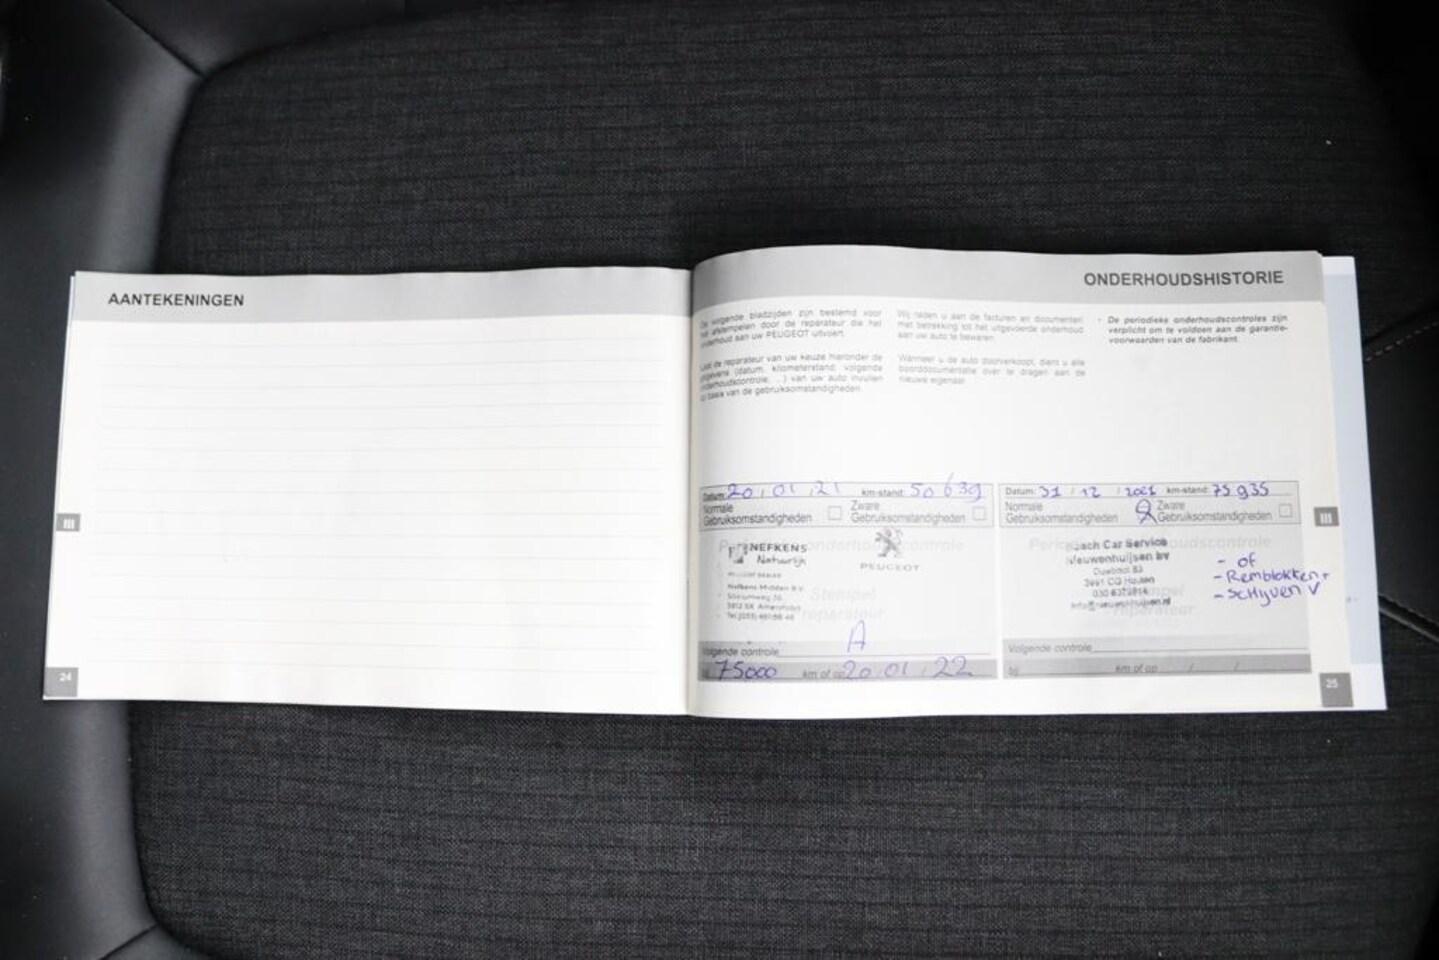 AANTEKENINGEN
24
III
ONDERHOUDSHISTORIE
De volgende bladzijden zijn bestemd voor
het afstempelen door de reparateur die het
onderhoud aan uw PEUGEOT uitvoert.
Laat de reparateur van uw keuze hieronder de
gegevens (datum, kilometerstand, volgende
onderhoudscontrole, ...) van uw auto invullen
op basis van de gebruiksomstandigheden.
Wij raden u aan de facturen en documenten
met betrekking tot het uitgevoerde onderhoud
aan uw auto te bewaren.
Wanneer u de auto doorverkoopt, dient u alle
boorddocumentatie over te dragen aan de
nieuwe eigenaar.
- De periodieke onderhoudscontroles zijn
verplicht om te voldoen aan de garantie-
voorwaarden van de fabrikant.
Datum: 20 / 01 / 21 km-stand: 50 639
Normale
Gebruiksomstandigheden
Zware
Gebruiksomstandigheden
Periodieke onderhoudscontrole
NEFKENS
Natuurlijk
PEUGEOT
PEUGEOT DEALER
Nefkens Midden B.V.
3812 SX Amersfoort
Stempel
reparateur
A
Volgende controle
bij 75000 km of op 20 / 01 / 22
Datum: 31 / 12 / 2021 km-stand: 75 935
Normale
Gebruiksomstandigheden
Zware
Gebruiksomstandigheden
Bosch Car Service
Nieuwenhuijsen BV
3991 CG Houten
- of
- Remblokken +
- Schijven V
Volgende controle
bij km of op / /
III
25